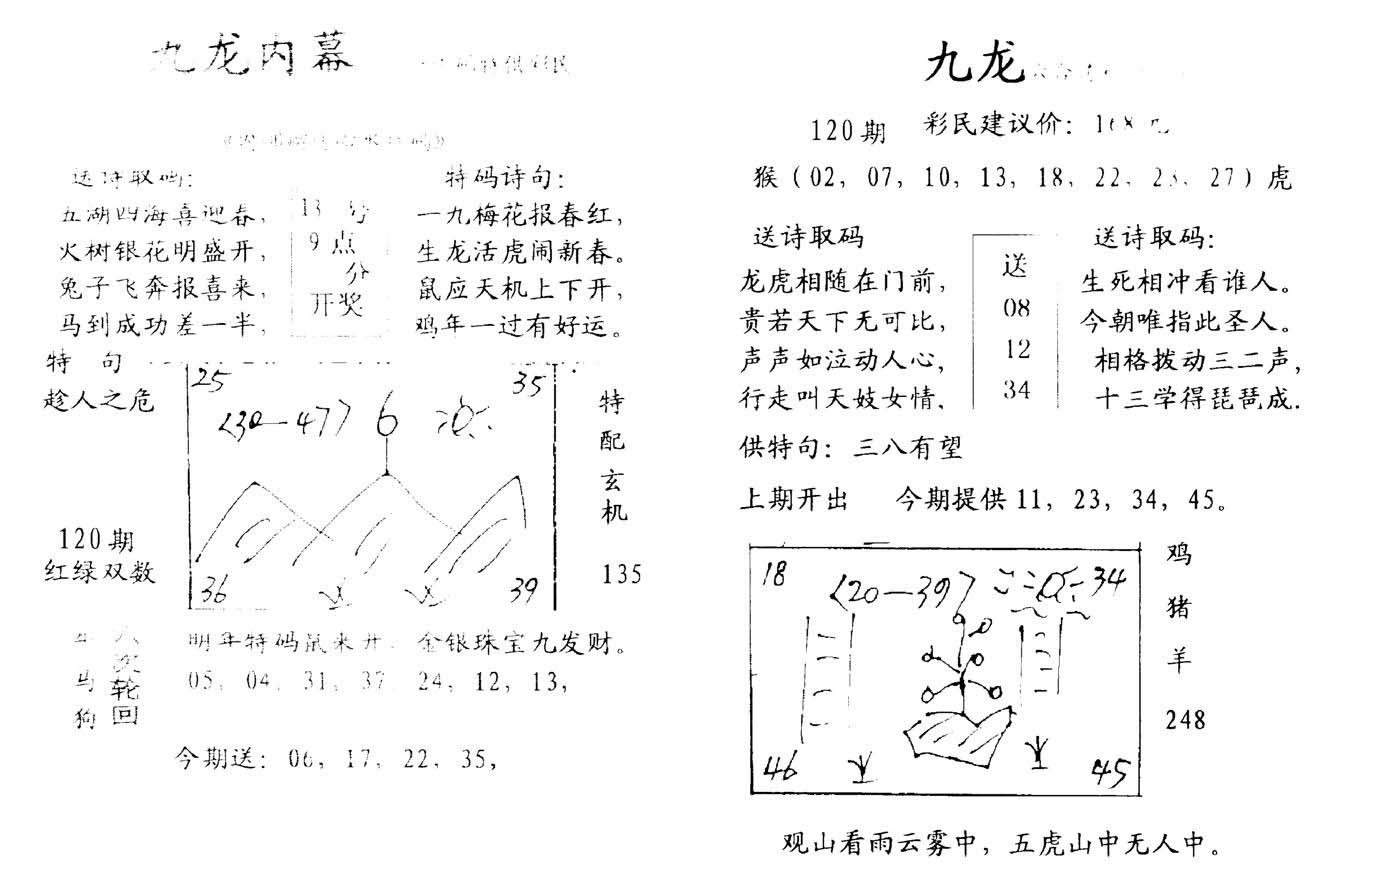 九龙内幕
送诗取码:
五湖四海喜迎春,
火树银花明盛开,
兔子飞奔报喜来,
马到成功差一半,
13 号
9 点
分
开奖
特码诗句:
一九梅花报春红,
生龙活虎闹新春。
鼠应天机上下开,
鸡年一过有好运。
特 句
趁人之危
120期
红绿双数
25
35
<30—47> 6
36
39
特配玄机
135
马
狗
轮回
明年特码鼠来开 金银珠宝九发财。
05, 04, 31, 37, 24, 12, 13,
今期送: 06, 17, 22, 35,
九龙
120期 彩民建议价: 168元
猴 (02, 07, 10, 13, 18, 22, 23, 27) 虎
送诗取码
龙虎相随在门前,
贵若天下无可比,
声声如泣动人心,
行走叫天妓女情.
送
08
12
34
送诗取码:
生死相冲看谁人。
今朝唯指此圣人。
相格拨动三二声,
十三学得琵琶成.
供特句: 三八有望
上期开出 今期提供11, 23, 34, 45。
18
<20—39>
34
46
45
鸡
猪
羊
248
观山看雨云雾中, 五虎山中无人中。